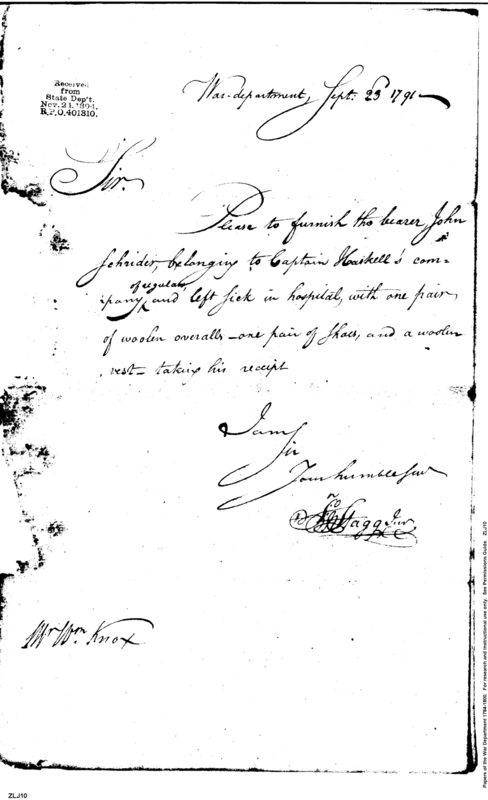 Received
from
State Dep't.
Nov. 24, 1894,
R.P.O. 401310.
War-department, Sept. 23d 1791—
Sir.
Please to furnish the bearer, John
Schrider, belonging to Captain Haskell's com-
of regulars
pany and left sick in hospital, with one pair
of woolen overalls—one pair of Shoes, and a woolen
vest— taking his receipt
I am
Sir
Your humble Serv
Jno Stagg Junr
Mr Wm Knox
ZLJ10
Papers of the War Department 1784-1800. For research and instructional use only. See Permissions Guide. ZLJ10